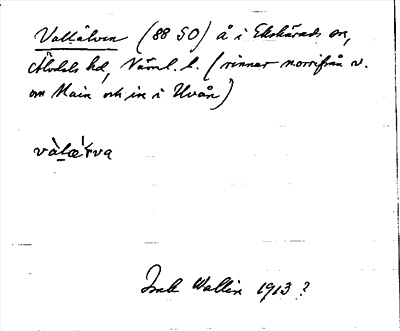 Vallälven (88 50) å i Ekshärads sn,
Älvdals hd, Värml. l. (rinner norrifrån v.
om Main och in i Uvån)
Wallin 1913?